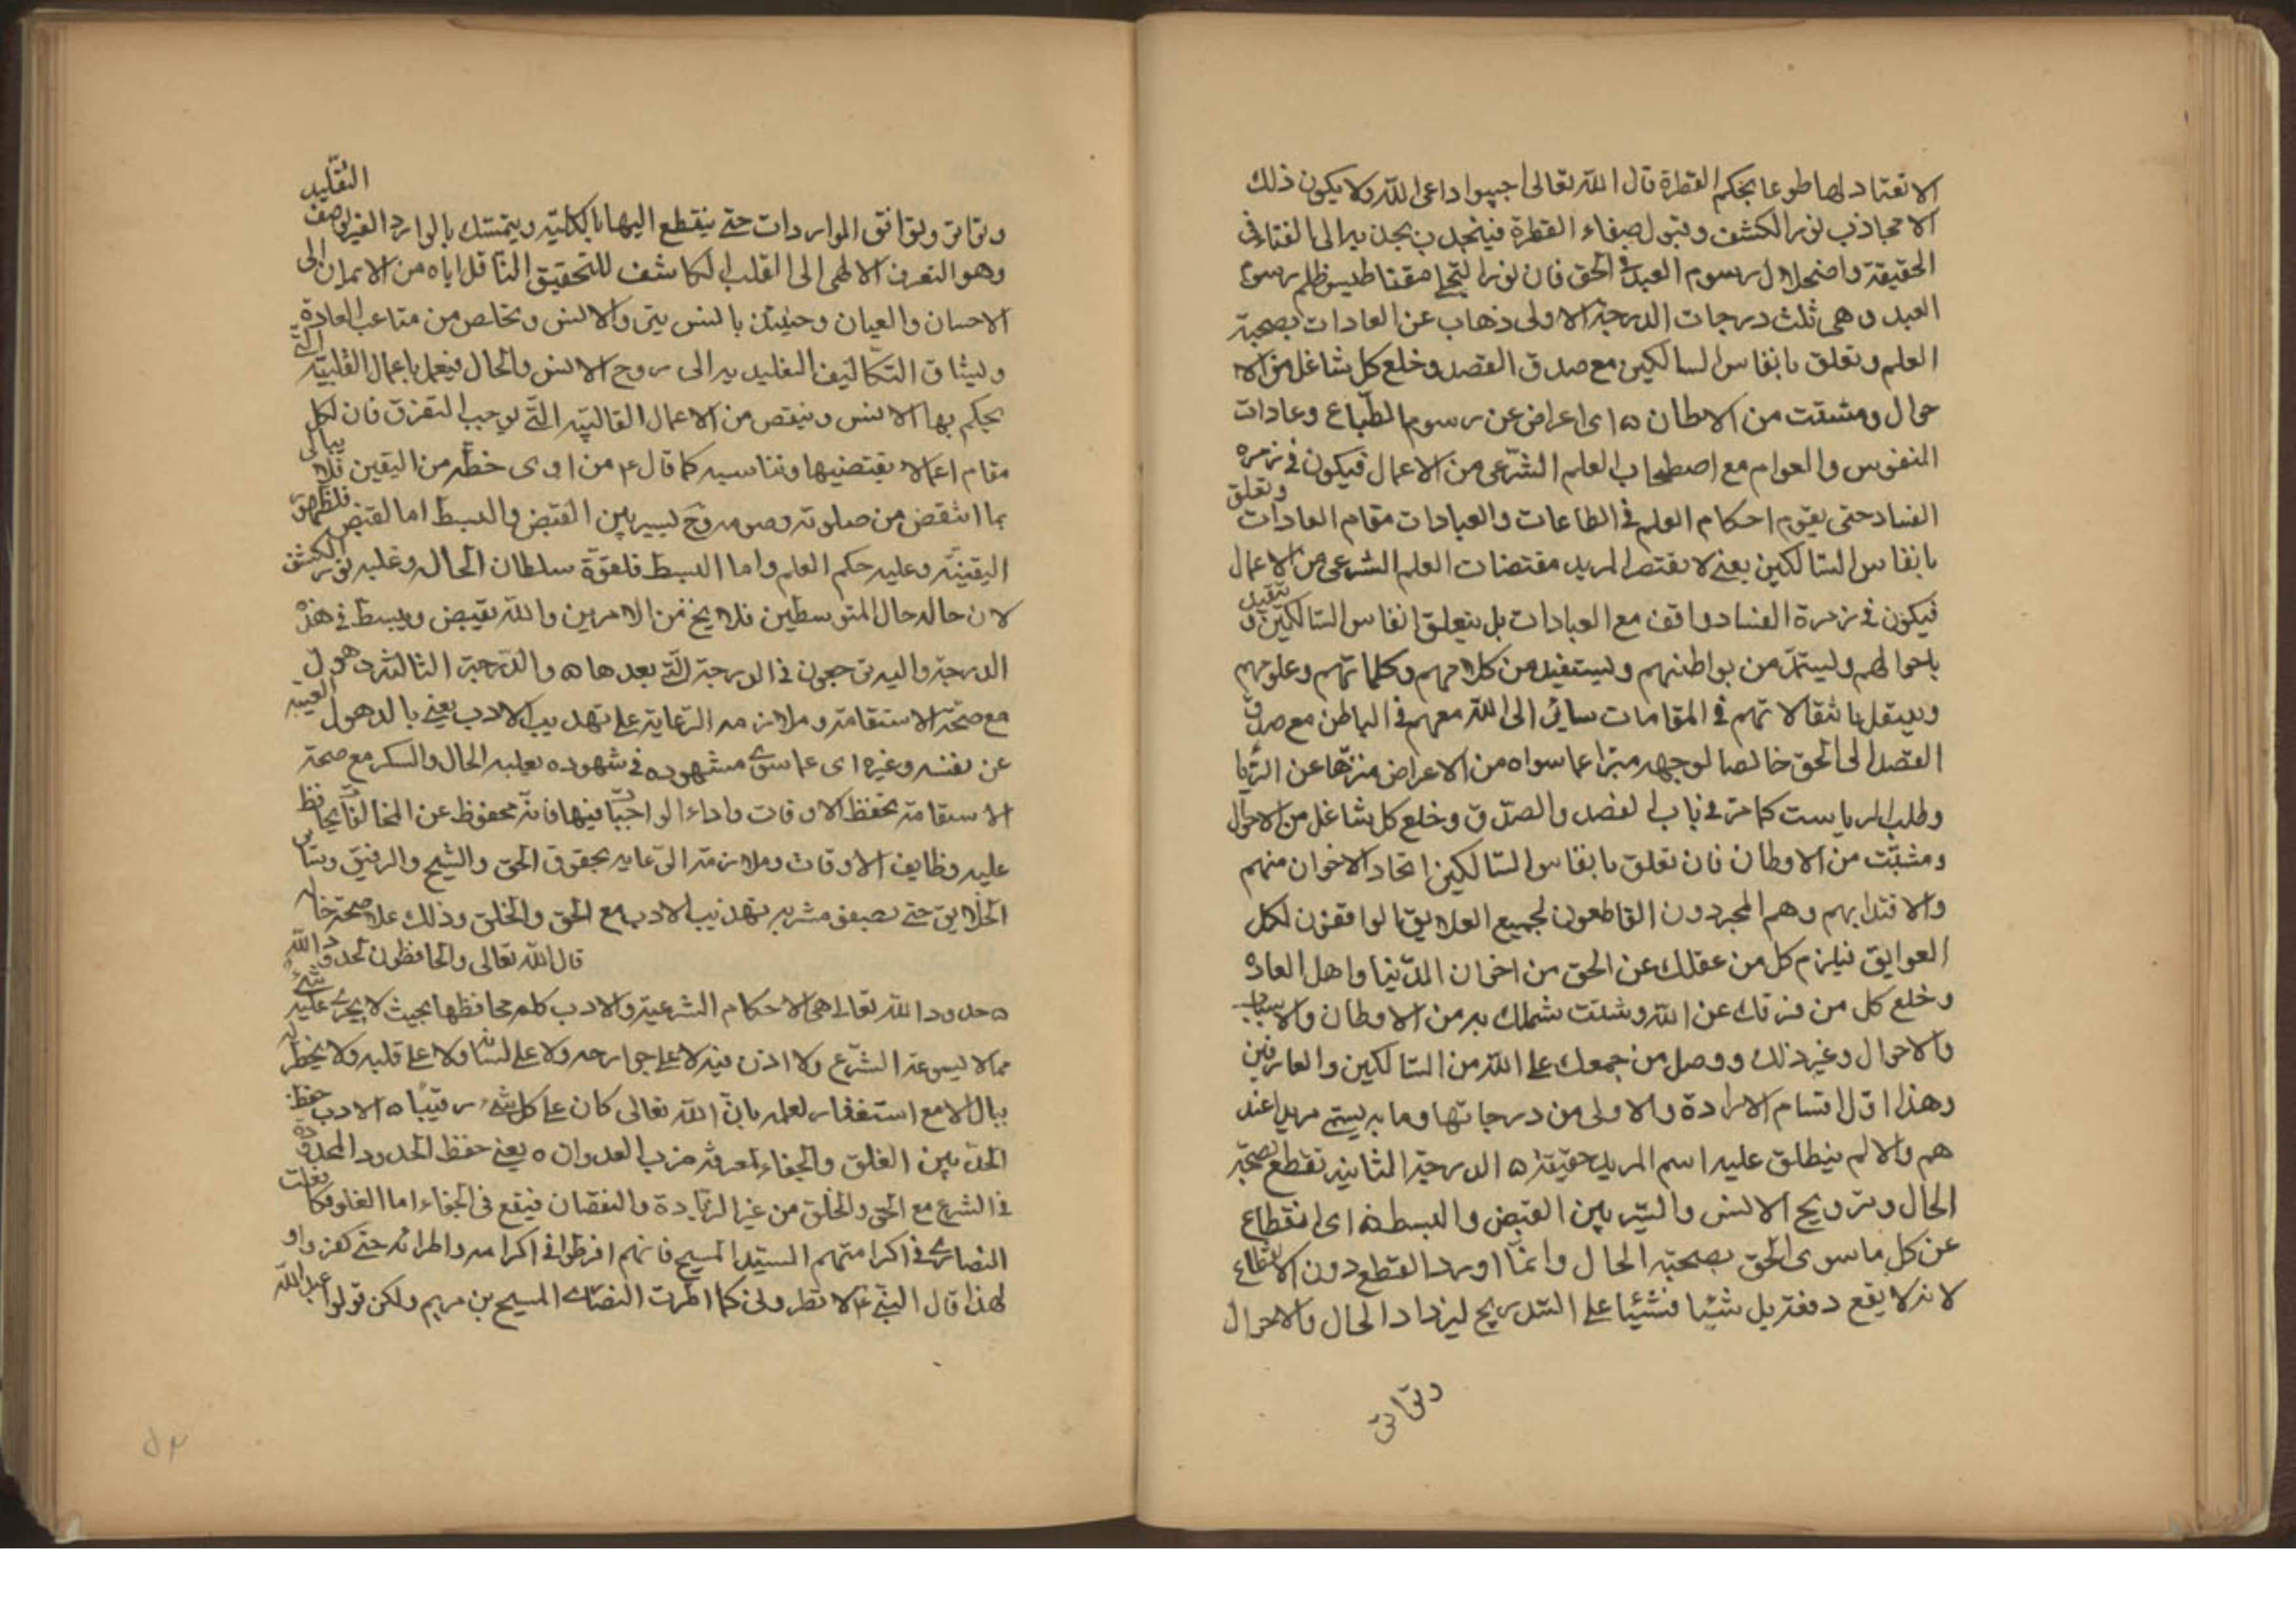 الا تعتاد لها طوعا بحكم الفطرة قال الله تعالى اجيبوا داعى الله ولا يكون ذلك
الا بمجاذب نور الكشف وقبول صفاء الفطرة فينجذب بجذبه الى الفناء فى
الحقيقة واضمحلال رسوم العبد فى الحق فان نور التجلى مقناطيس ظلم رسوم
العبد وهى ثلث درجات الدرجة الاولى ذهاب عن العادات بصحبة
العلم وتعلق بانفاس السالكين مع صدق القصد وخلع كل شاغل من الا
حوال ومشتت من الاطان ه اى اعراض عن رسوم الطباع وعادات
النفوس والعوام مع اصطحاب العلم الشرعى من الاعمال فيكون فى زمره
الفساد حتى يقوم احكام العلم فى الطاعات والعبادات مقام العادات وتعلق
بانفاس السالكين يعنى لا يقتصر المريد مقتضات العلم الشرعى من الاعمال
فيكون فى زمرة الفساد واقف مع العبادات بل يتعلق انفاس السالكين و
باحوالهم وليستمد من بواطنهم وليستفيد من كلامهم وكلماتهم وعلومهم
وينتقل بانتقالاتهم فى المقامات سائر الى الله معهم فى الباطن مع صدق
القصد الى الحق خالصا لوجهه مبترا عما سواه من الاعراض منزها عن الريا
وطلب الرياست كما مر فى باب القصد والصدق وخلع كل شاغل من الاحوال
ومشتت من الاوطان فان تعلق بانفاس السالكين اتحاد الاخوان منهم
والاقتدا بهم وهم المجردون القاطعون لجميع العلايق الواقفون لكل
العوايق فيلزم كل من عقلك عن الحق من اخوان الدنيا واهل العاده
وخلع كل من فرقك عن الله وشتت شملك به من الاوطان والاسباب
والاحوال وغير ذلك ووصل من جمعك على الله من السالكين والعارفين
وهذا اول اقسام الارادة والاولى من درجاتها وما به يستم مريدا عند
هم والا لم ينطلق عليه اسم المريد حقيقة ه الدرجة الثانية تقطع بصحبة
الحال وترويح الانس والسير بين القبض والبسط ه اى انقطاع
عن كل ما سوى الحق بصحبة الحال وانما اورد القطع دون الانقطاع
لانه لا يقع دفعة بل شيئا فشيئا على التدريج ليزداد الحال والاحوال
وتواتر
وتواتر وتوافق المواردات حتى ينقطع اليها بالكلية ويتمسك بالوارد الغير لوصف التقليد
وهو التعرف الالهى الى القلب الكاشف للتحقيق الناقل اياه من الايمان الى
الاحسان والعيان وحينئذ بالنس يترو الانس وتخلص من متاعب العادة
وليشاق التكاليف التقليديه الى روح الانس والحال فيعمل باعمال القلبية التى
يحكم بها الانس وينقص من الاعمال القالبية التى توجب التفرق فان لكل
مقام اعمالا يقتضيها وتناسبه كما قال ع من اوى خطه من اليقين فلا يبالى
بما انتقض من صلوته وصومه وح ليسير بين القبض والبسط اما القبض فلظهور
اليقينه وعليه حكم العلم واما البسط فلقوة سلطان الحال وغلبه نور الكشف
لان حاله حال المتوسطين فلا يخ من الامرين والله يقبض ويبسط فى هذه
الدرجة واليه ترجعون فى الدرجة التى بعدها ه والدرجة الثالثة ذهول
مع صحة الاستقامة وملازمه الرعاية على تهذيب الادب يعنى بالذهول الغيبه
عن نفسه وغيره اى عما سوى مشهوده فى شهوده بغلبه الحال والسكر مع صحة
الاستقامة بحفظ الاوقات واداء الواجبات فيها فانه محفوظ عن المخالفات يحافظ
عليه وظايف الاوقات وملازمة الرعايه بحقوق الحق والشيخ والرفيق وسا
الخلايق حتى يصفو مشربه بتهذيب الادب مع الحق والخلق وذلك علامة صحة حاله
قال الله تعالى والحافظون لحدود الله
ه حدود الله تعالى هى الاحكام الشرعية والادب كله محافظها بحيث لا يجرى عليه شئ
مما لا يسوغه الشرع ولا اذن فيه لا على جوارحه ولا على لسانه ولا على قلبه ولا يخطر له
ببال الا مع استغفار لعلمه بان الله تعالى كان على كل شئ رقيبا ه الادب حفظ
الحد بين الغلو والجفاء لمعرفة ضرب العدوان ه يعنى حفظ الحدود المحدودة
فى الشرع مع الحق والخلق من غير الزيادة والنقصان فيقع فى الجفاء اما الغلو فكا فعلت
النصارى فى اكرامتهم السيد المسيح فانهم افرطوا فى اكرامه واطرائه حتى كفروا و
لهذا قال النبى ع لا تطرونى كما اطرت النصارى المسيح بن مريم ولكن قولوا عبد الله